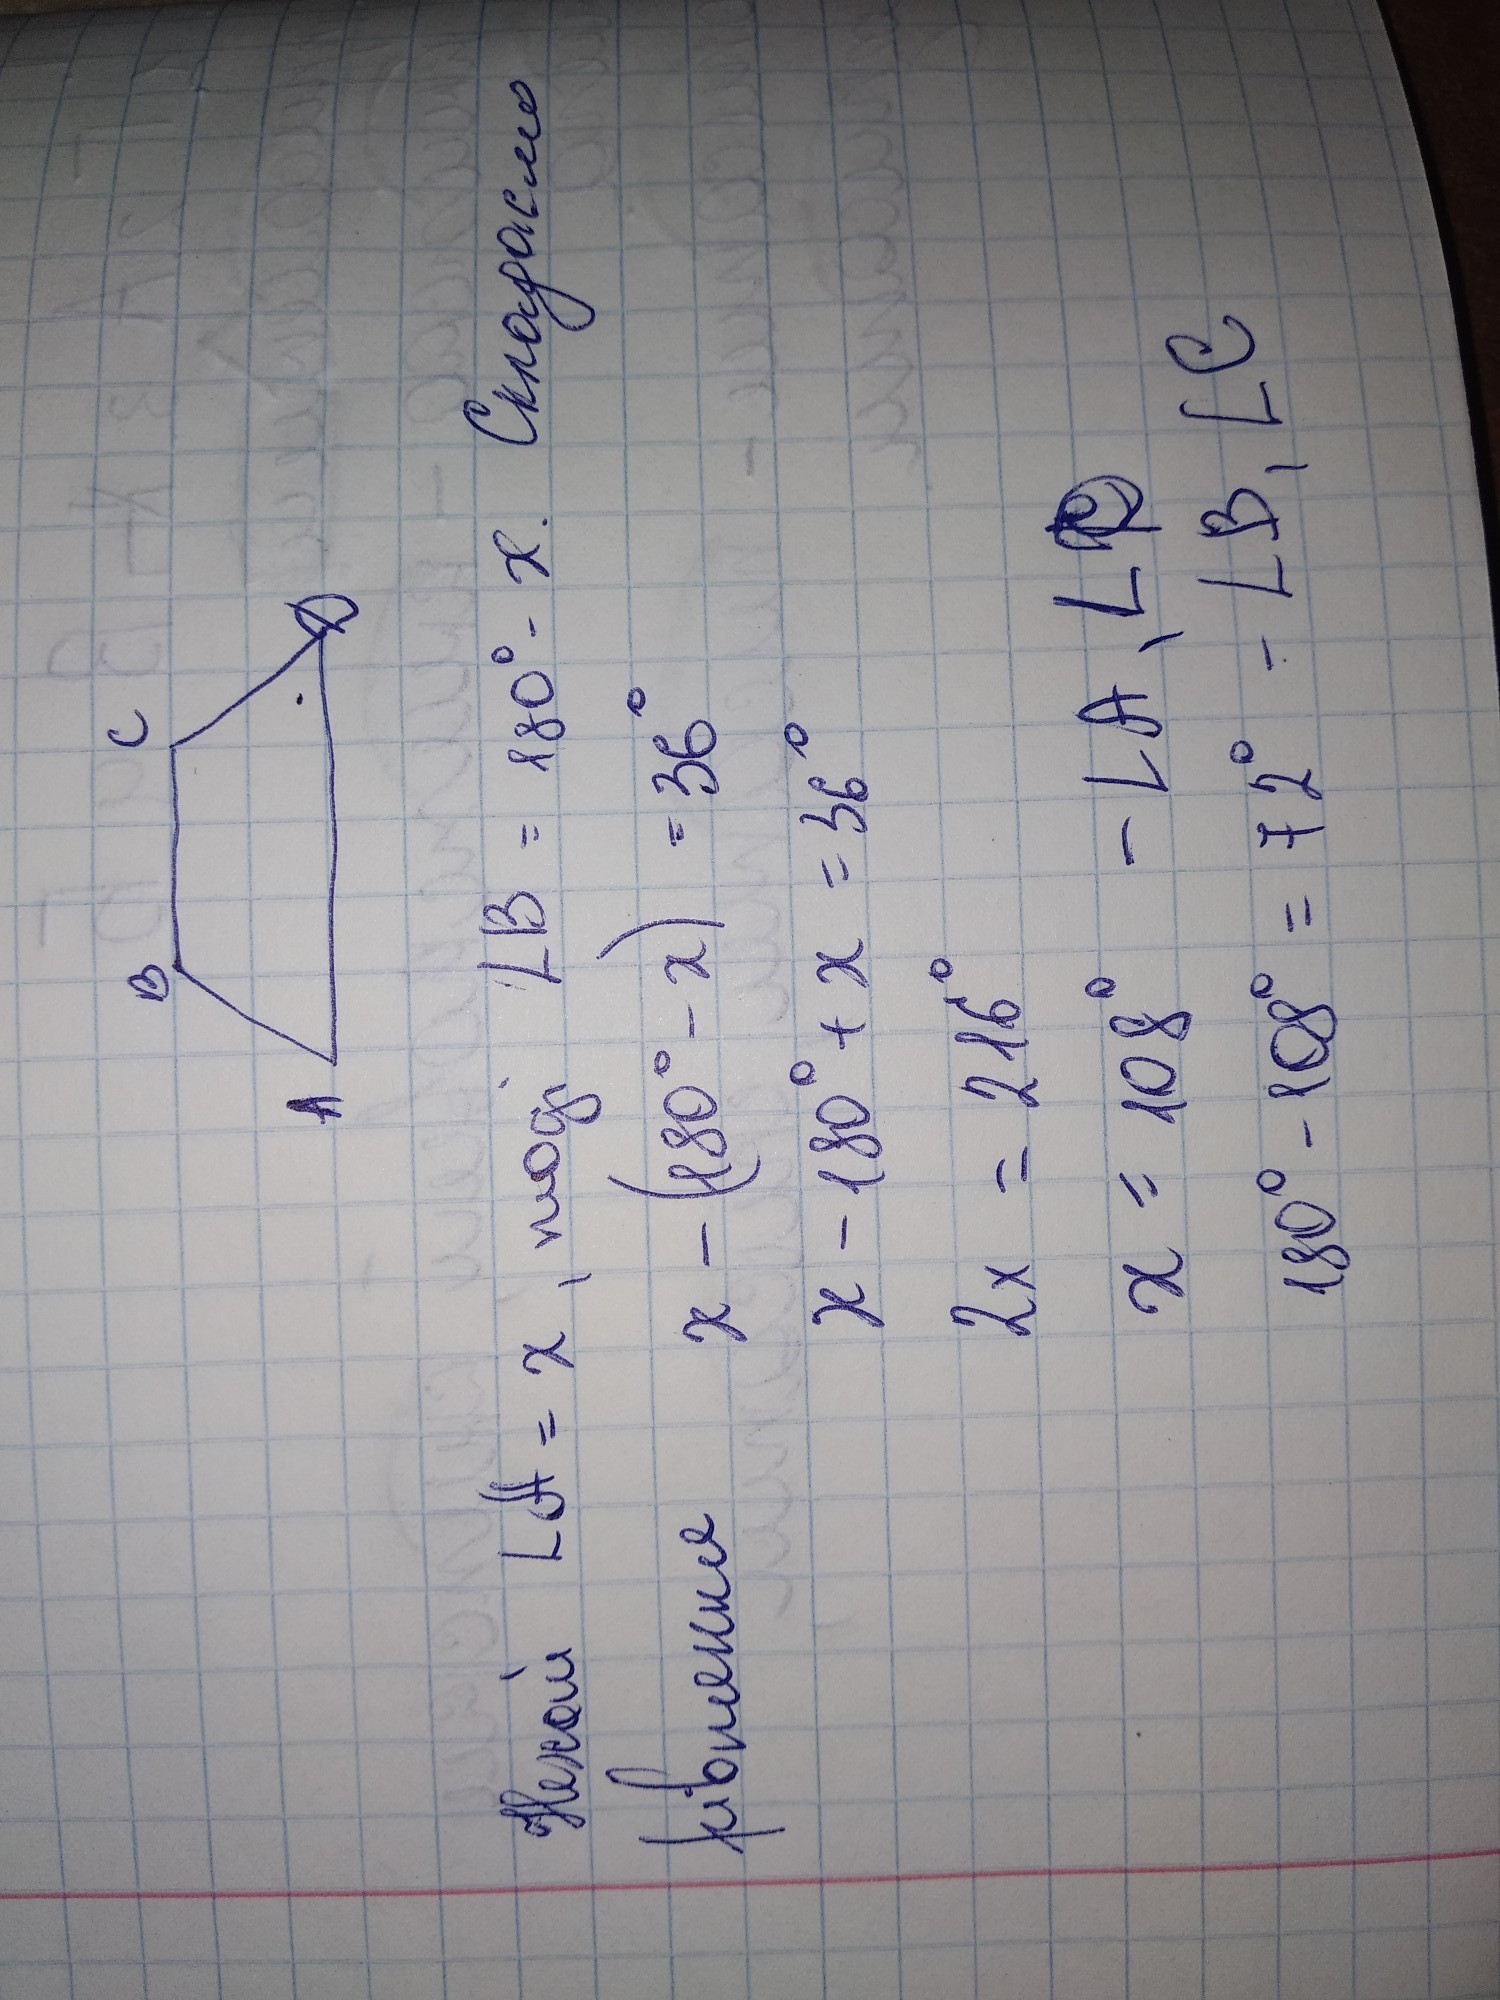 B C
A D
Нехай ∠A = x, тоді ∠B = 180° - x. Складемо
рівняння x - (180° - x) = 36°
x - 180° + x = 36°
2x = 216°
x = 108° - ∠A, ∠D
180° - 108° = 72° - ∠B, ∠C